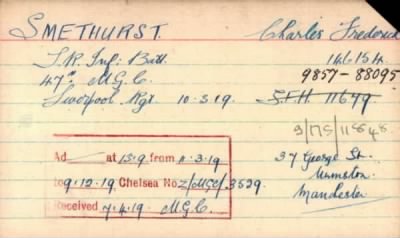 SMETHURST. Charles Frederick
T.R. Inf: Batt. 146154
47th M.G.C. 9857-88095
Liverpool Rgt 10.3.19. S.F.H. 11649
3/MS/11848
Ad at 13/9 from 11.3.19 37 George St.
to 9.12.19 Chelsea No. Z/MGC/3529. Urmston
Received 7.4.19 M.G.C. Manchester